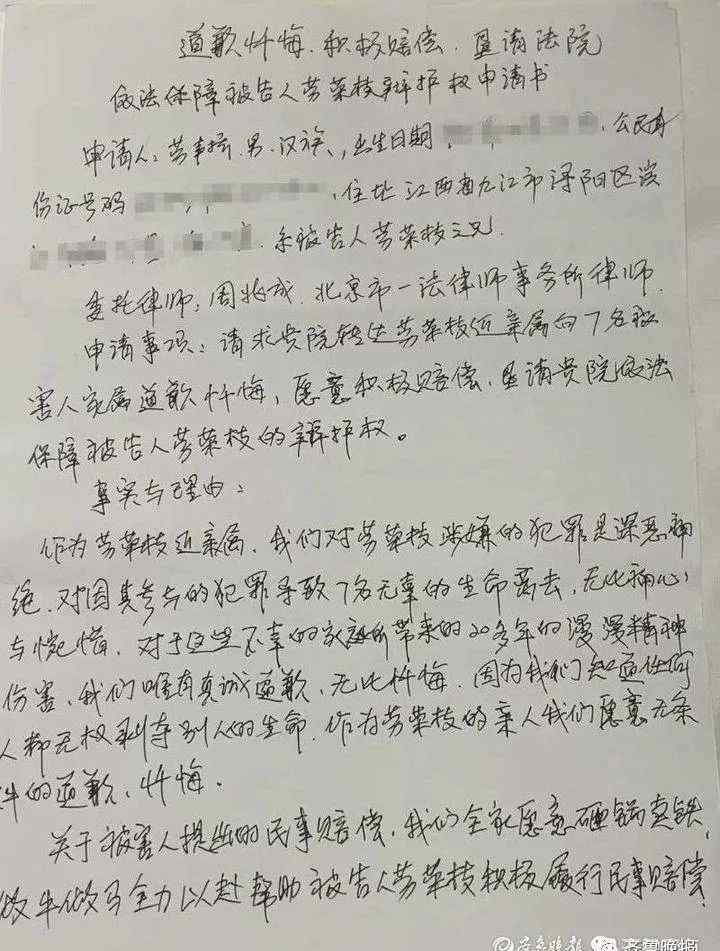 道歉忏悔、积极赔偿、恳请法院
依法保障被告人劳荣枝辩护权申请书
申请人:劳声桥,男,汉族,出生日期 ,公民身
份证号码 ,住址江西省九江市浔阳区滨
,系被告人劳荣枝之兄.
委托律师:周兆成,北京市一法律师事务所律师.
申请事项:请求贵院转达劳荣枝近亲属向7名被
害人家属道歉忏悔,愿意积极赔偿,恳请贵院依法
保障被告人劳荣枝的辩护权。
事实与理由:
作为劳荣枝近亲属,我们对劳荣枝涉嫌的犯罪是深恶痛
绝,对因其参与的犯罪导致7名无辜的生命离去,无比痛心
与惋惜,对于这些不幸的家庭所带来的20多年的漫漫精神
伤害,我们唯有真诚道歉,无比忏悔,因为我们知道任何
人都无权剥夺别人的生命.作为劳荣枝的亲人我们愿意无条
件的道歉、忏悔.
关于被害人提出的民事赔偿,我们全家愿意砸锅卖铁,
做牛做马全力以赴帮助被告人劳荣枝积极履行民事赔偿,
齐鲁晚报 齐鲁晚报